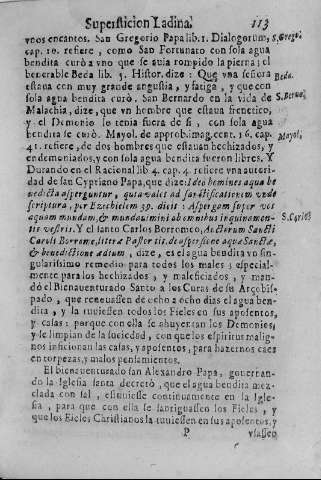 Supersticion Ladina. 113
vnos encantos. San Gregorio Papa lib. 1. Dialogorum,
S. Grego.
cap. 10. refiere, como San Fortunato con sola agua
bendita curò a vno que se auia rompido la pierna; el
benerable Beda lib. 5. Histor. dize: Que vna señora
Beda.
estaua con muy grande angustia, y fatiga, y que con
sola agua bendita curò. San Bernardo en la vida de
S. Bernar.
Malachia, dize, que vn hombre que estaua frenetico,
y el Demonio le tenia fuera de si, con sola agua
bendita se curò. Mayol. de approb. imag. cent. 16. cap.
Mayol.
41. refiere, de dos hombres que estauan hechizados, y
endemoniados, y con sola agua bendita fueron libres. Y
Durando en el Racional lib. 4. cap. 4. refiere vna autori-
dad de San Cypriano Papa, que dize: Ideo homines aqua be
nedicta asperguntur, quia valet ad sanctificationem vnde
scriptura, per Ezechielem 39. dicit: Aspergam super vos
aquam mundam, & mundauimini ab omnibus inquinamen-
tis vestris. Y el santo Carlos Borromeo, Auctorum Sancti
S. Carlos
Caroli Borromæ, literæ Pastor tit. de aspersione aquæ Sanctæ,
& benedictione ædium, dize, es el agua bendita vn sin-
gularissimo remedio para todos los males, y especial-
mente para los hechizados, y maleficiados, y man-
dó el Bienauenturado Santo a los Curas de su Arçobis-
pado, que renouassen de ocho a ocho dias el agua ben-
dita, y la tuuiessen todos los Fieles en sus aposentos,
y casas: porque con ella se ahuyentan los Demonies,
y se limpian de la suciedad, con que los espiritus malig-
nos inficionan las casas, y aposentos, para hazernos caer
en torpezas, y malos pensamientos.
El bienauenturado san Alexandro Papa, gouernan-
do la Iglesia santa decretò, que el agua bendita mez-
clada con sal, estuuiesse continuamente en la Igle-
sia, para que con ella se santiguassen los Fieles, y
que los Fieles Christianos la tuuiessen en sus aposentos, y
P vsassen